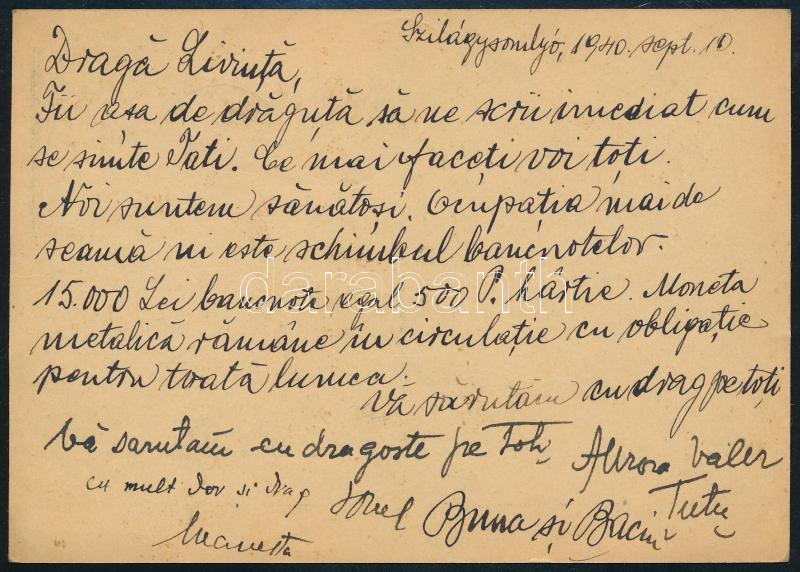 Szilágysomlyó, 1940. sept. 10.
Dragă Livință,
Fii așa de drăguță să ne scrii imediat cum
se simte Tati. Ce mai faceți voi toți.
Noi suntem sănătoși. Ocupația mai de
seamă ni este schimbul bancnotelor.
15.000 Lei bancnote egal 500 P. hârtie. Moneta
metalică rămâne în circulație cu obligație
pentru toată lumea.
Vă sărutăm cu drag pe toți
Vă sarutam cu dragoste pe Toți Aurora Valer
cu mult dor si drag Ionel Buna și Baciu Tutu
darabanth